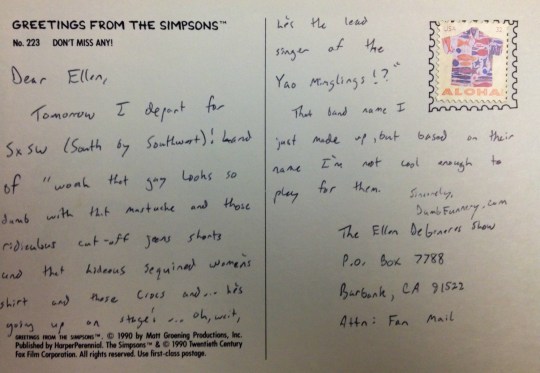 GREETINGS FROM THE SIMPSONS™
No. 223 DON'T MISS ANY!
Dear Ellen,
Tomorrow I depart for
SxSW (South by Southwest)! Land
of "woah that guy looks so
dumb with that mustache and those
ridiculous cut-off jeans shorts
and that hideous sequined women's
shirt and those Crocs and... he's
going up on stage? ... oh, wait,
GREETINGS FROM THE SIMPSONS™. © 1990 by Matt Groening Productions, Inc.
Published by HarperPerennial. The Simpsons™ & © 1990 Twentieth Century
Fox Film Corporation. All rights reserved. Use first-class postage.
he's the lead
singer of the
Yao Minglings!?"
That band name I
just made up, but based on their
name I'm not cool enough to
play for them.
Sincerely,
DumbFunnery.com
The Ellen DeGeneres Show
P.O. Box 7788
Burbank, CA 91522
Attn: Fan Mail
USA 32
ALOHA!